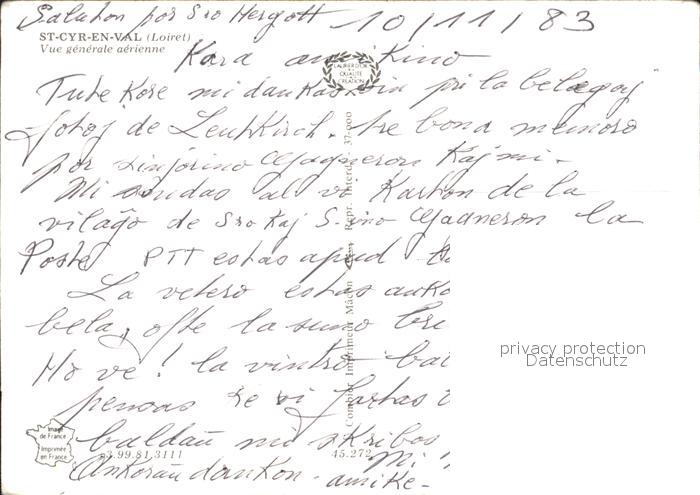 Saluton por Sro Hergott 10/11/83
ST-CYR-EN-VAL (Loiret)
Vue générale aérienne
Kara amikino
LAURÉAT D'OR
QUALITÉ
CRÉATION
Tute kore mi dankas vin pri la belegaj
fotoj de Leutkirch. tre bona memoro
por sinjorino Wagneron Kaj mi -
Mi sendas al vi Karton de la
vilaĝo de Sro Kaj S-ino Wagneron la
Poste PTT estas apud
La vetero estas anko
bela, ofte la suno bri
Ho ve! la vintro bal
pensas ke vi fartas
baldaŭ mi skribos
Ankoraŭ dankon - amike -
Mi
Combier Imprimeur Mâcon Repr. Interdite 37-000
Image de France
Imprimée en France
3.99.81.3111
45.272
privacy protection
Datenschutz